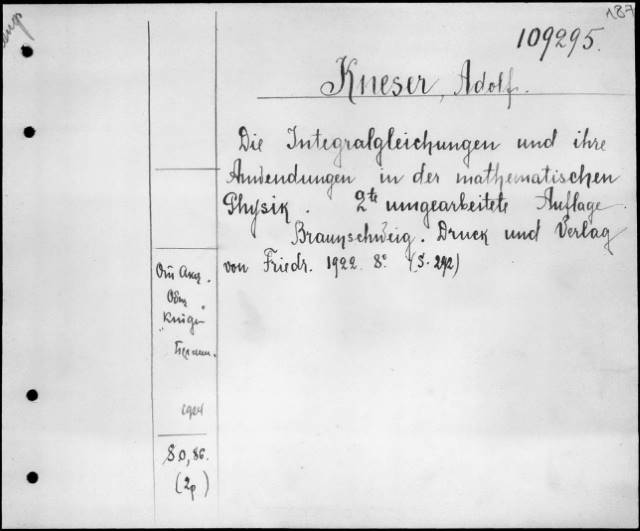 187
109295.
Kneser, Adolf.
Die Integralgleichungen und ihre
Anwendungen in der mathematischen
Physik. 2te umgearbeitete Auflage
Braunschweig. Druck und Verlag
von Friedr. 1922 8° (S. 292)
Акц.
Общ.
"Книга"
1924
80, 86.
(2р)